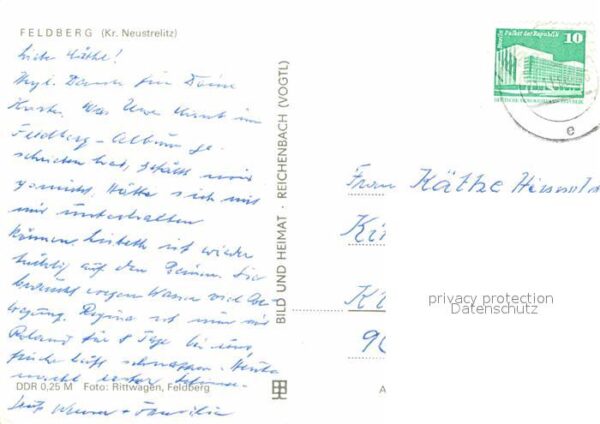 FELDBERG (Kr. Neustrelitz)
Liebe Käthe!
Dank für Deine
Karte. Was Uwe Kunst im
Feldberg-Album ge-
schrieben hat, gefällt mir
gar nicht. Hätte sich mit
mir unterhalten
können. ist wieder
tüchtig auf den Beinen. Sie
wegen Wasser viel Be-
wegung. Regina ist nun mit
Roland für 8 Tage bei uns
frische Luft schnappen. Heute
DDR 0,25 M Foto: Rittwagen, Feldberg
+ Familie
BILD UND HEIMAT · REICHENBACH (VOGTL)
Berlin Palast der Republik
10
DEUTSCHE DEMOKRATISCHE REPUBLIK
e
Frau Käthe
Ki
Ki
90
privacy protection
Datenschutz
A